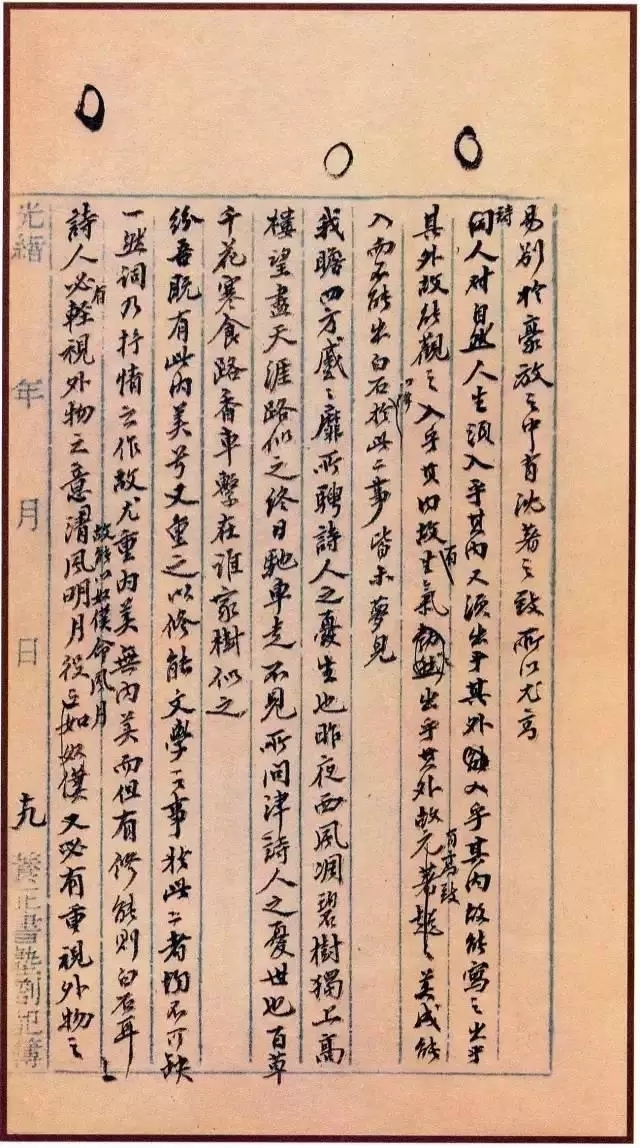 易别於豪放之中有沈著之致所以尤高
詩
间人对自然人生須入乎其内又須出乎其外入乎其内故能寫之出乎
其外故能觀之入乎其内故有生氣勃然出乎其外故元著超々美成能
有高致
入而不能出白石以降於此二事皆未夢見
我瞻四方蹙々靡所騁詩人之憂生也昨夜西風凋碧樹獨上高
樓望盡天涯路似之終日馳車走不見所問津詩人之憂世也百草
千花寒食路香車繫在誰家樹似之
紛吾既有此内美兮又重之以修能文學之事於此二者均不可缺
一然詞乃抒情之作故尤重内美無内美而但有修能則白石耳
詩人必有輕視外物之意清風明月役之如奴僕又必有重視外物之
故能以奴僕命風月
光緒 年 月 日 九 養正書塾劄記簿